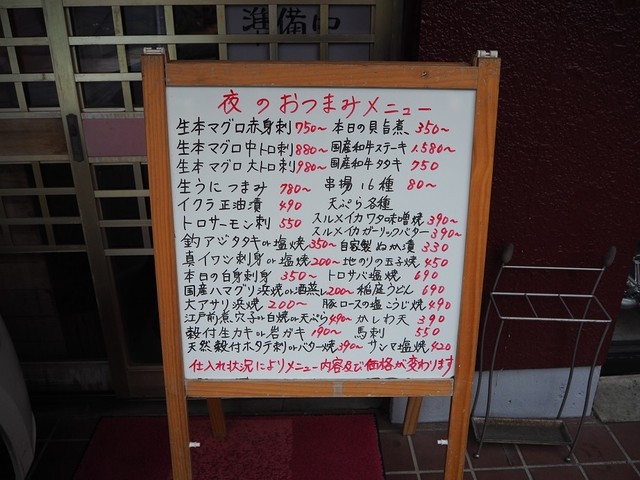 準備中
夜のおつまみメニュー
生本マグロ赤身刺750~ 本日の貝旨煮 350~
生本マグロ中トロ刺880~ 国産和牛ステーキ1.580~
生本マグロ 大トロ刺980~ 国産和牛タタキ 750
生うにつまみ 780~ 串揚16種 80~
イクラ正油漬 490 天ぷら各種
トロサーモン刺 550 スルメイカワタ味噌焼390~
スルメイカガーリックバター390~
釣アジタタキor塩焼350~ 自家製ぬか漬 330
真イワシ刺身or塩焼200~ 地のりの玉子焼 450
本日の白身刺身 350~ トロサバ塩焼 690
国産ハマグリ浜焼or酒蒸し200~ 稲庭うどん 690
大アサリ浜焼 200~ 豚ロースの塩こうじ焼490
江戸前煮穴子or白焼or天ぷら490~ かしわ天 390
殻付生カキor岩ガキ 190~ 馬刺 550
天然殻付ホタテ刺orバター焼390~ サンマ塩焼420
仕入れ状況によりメニュー内容及び価格が変わります